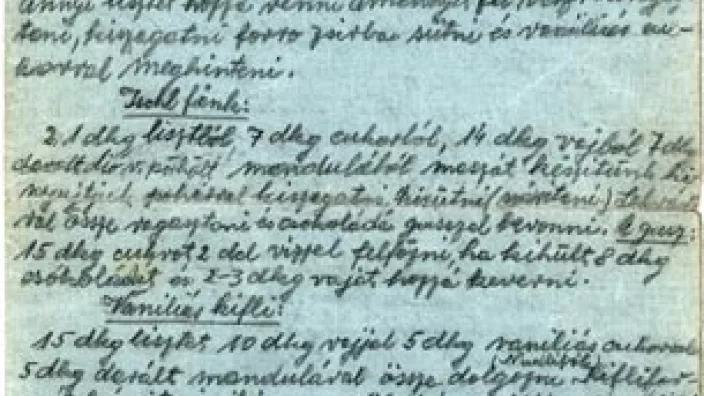 annyi lisztet hozzá venni amennyit fel vesz
teni, kiszagatni forro zsirba sütni és vaniliás cu-
korral meghinteni.
Ischl fánk:
21 dkg lisztből, 7 dkg cukorból, 14 dkg vajból 7 dkg
darált dió v. pőkölt mandulából maszát készitünk ki
nyujtjuk pohárral kiszagatni kisütni
ral össze ragasztani és csokoládé guszzel bevonni. A gusz:
15 dkg cukrot 2 del vizzel felfőzni, ha kihült 8 dkg
csokoládét és 2-3 dkg vajat hozzá keverni.
Vaniliás kifli:
15 dkg lisztet 10 dkg vajjal 5 dkg vaniliás cukorral
5 dkg darált mandulával össze dolgozni. Kiflifor-